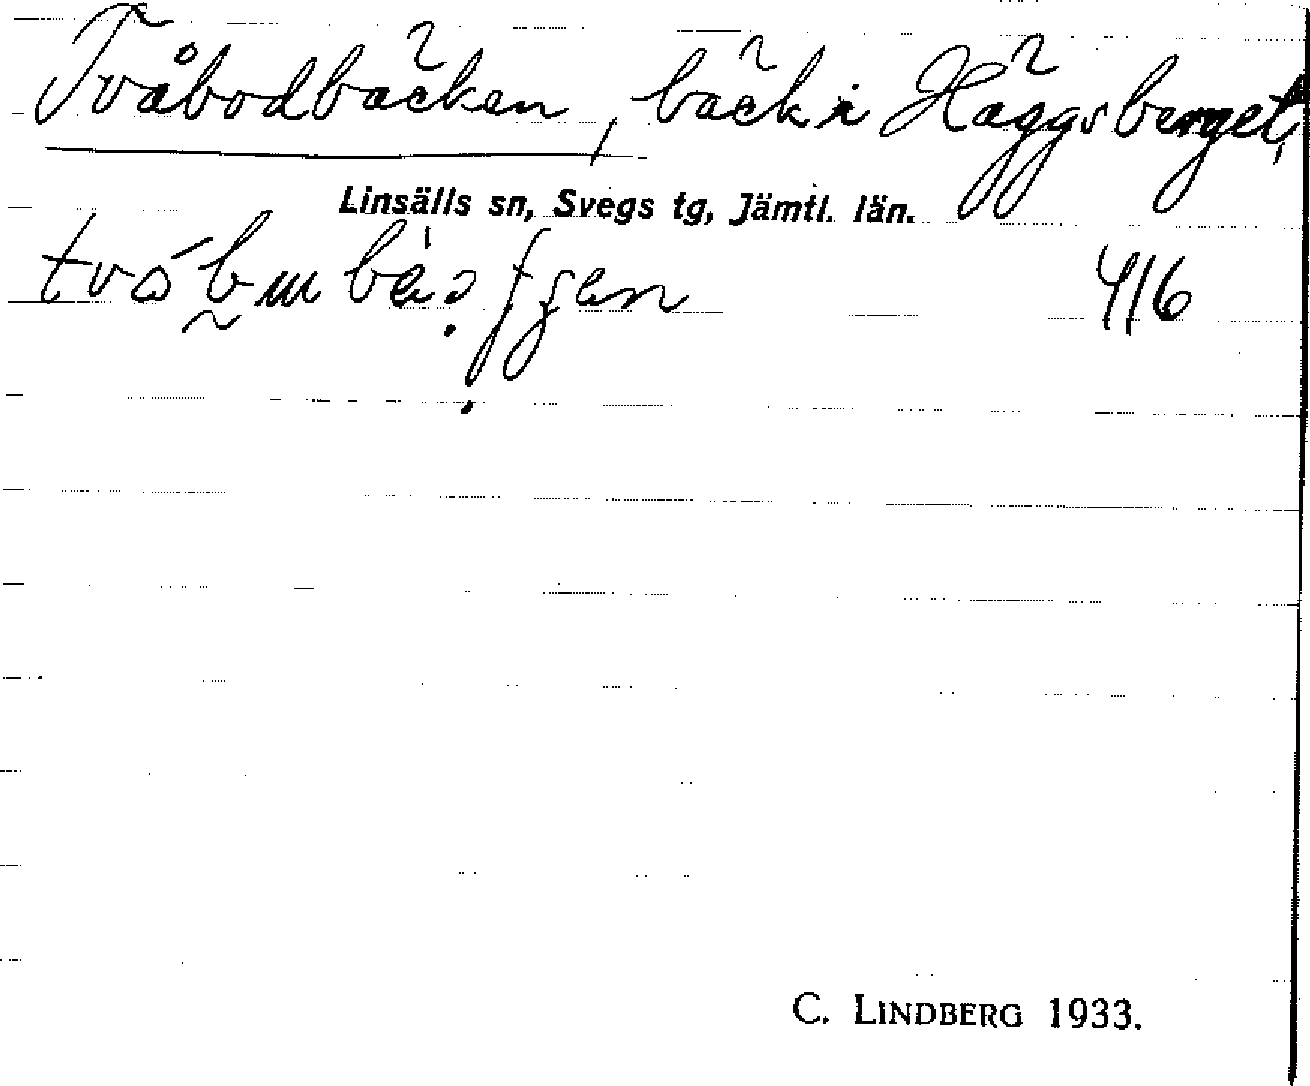 Tvåbodbäcken, bäck i Häggsberget,
Linsälls sn, Svegs tg, Jämtl. län.
416
C. LINDBERG 1933.